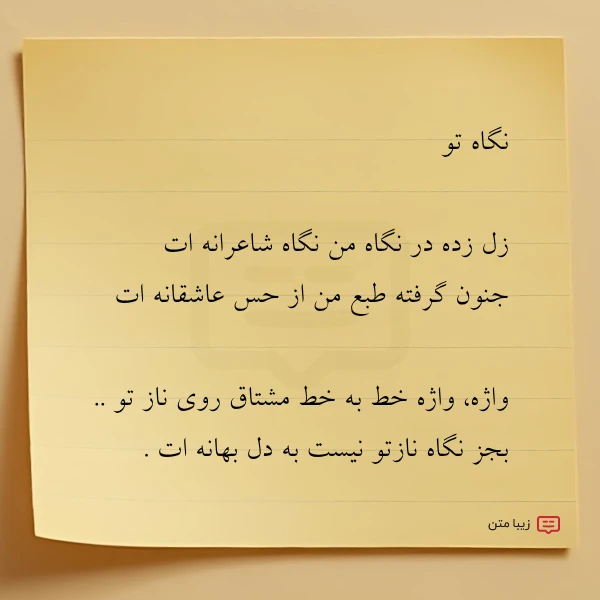 نگاه تو
زل زده در نگاه من نگاه شاعرانه ات
جنون گرفته طبع من از حس عاشقانه ات
واژه، واژه خط به خط مشتاق روی ناز تو ..
بجز نگاه نازتو نیست به دل بهانه ات .
زیبا متن